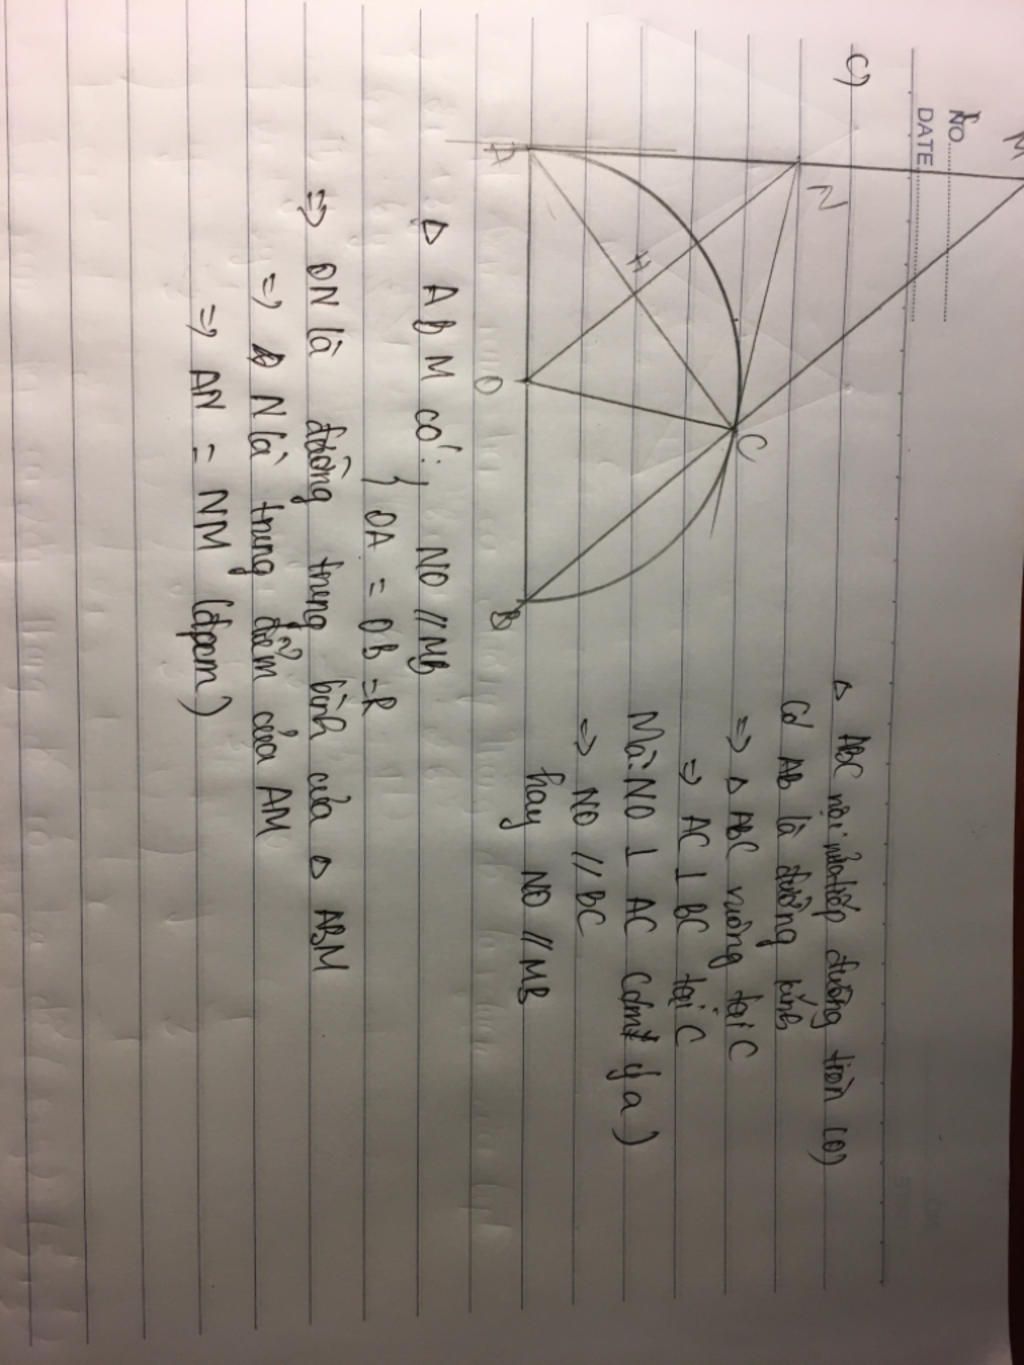 NO
DATE
C)
M
N
A
H
C
O
B
Δ ABC nội tiếp đường tròn (O)
Có AB là đường kính
=> Δ ABC vuông tại C
=> AC ⊥ BC tại C
Mà: NO ⊥ AC (cmt ý a)
=> NO // BC
hay NO // MB
Δ ABM có: } NO // MB
OA = OB = R
=> ON là đường trung bình của Δ ABM
=> N là trung điểm của AM
=> AN = NM (đpcm)